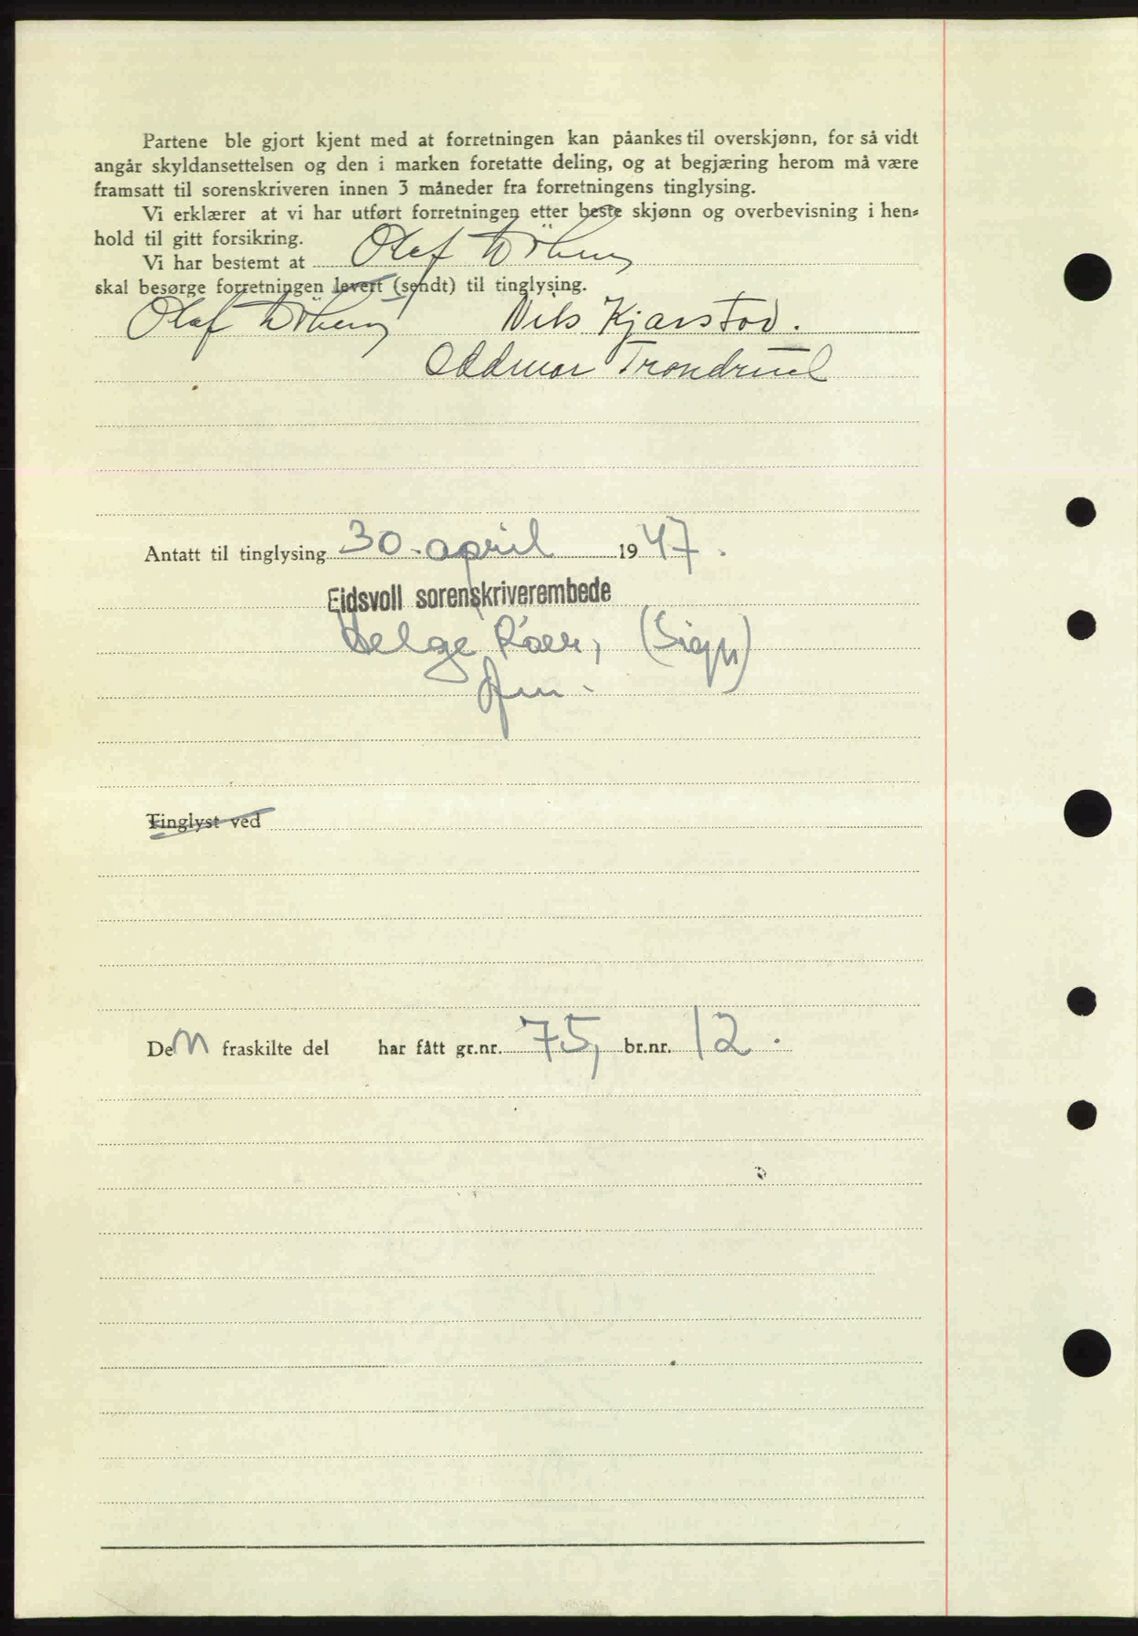 Partene ble gjort kjent med at forretningen kan påankes til overskjønn, for så vidt
angår skyldansettelsen og den i marken foretatte deling, og at begjæring herom må være
framsatt til sorenskriveren innen 3 måneder fra forretningens tinglysing.
Vi erklærer at vi har utført forretningen etter beste skjønn og overbevisning i hen-
hold til gitt forsikring.
Vi har bestemt at Olaf
skal besørge forretningen levert (sendt) til tinglysing.
Olaf Nils Kjærstad.
Oddmar Trondrud
Antatt til tinglysing 30. april 1947.
Eidsvoll sorenskriverembede
Helge Røer, (Sign)
Tinglyst ved
Den fraskilte del har fått gr.nr. 75, br.nr. 12.